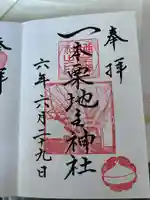 奉拝
一本栗地主神社
六年六月二十九日
奉